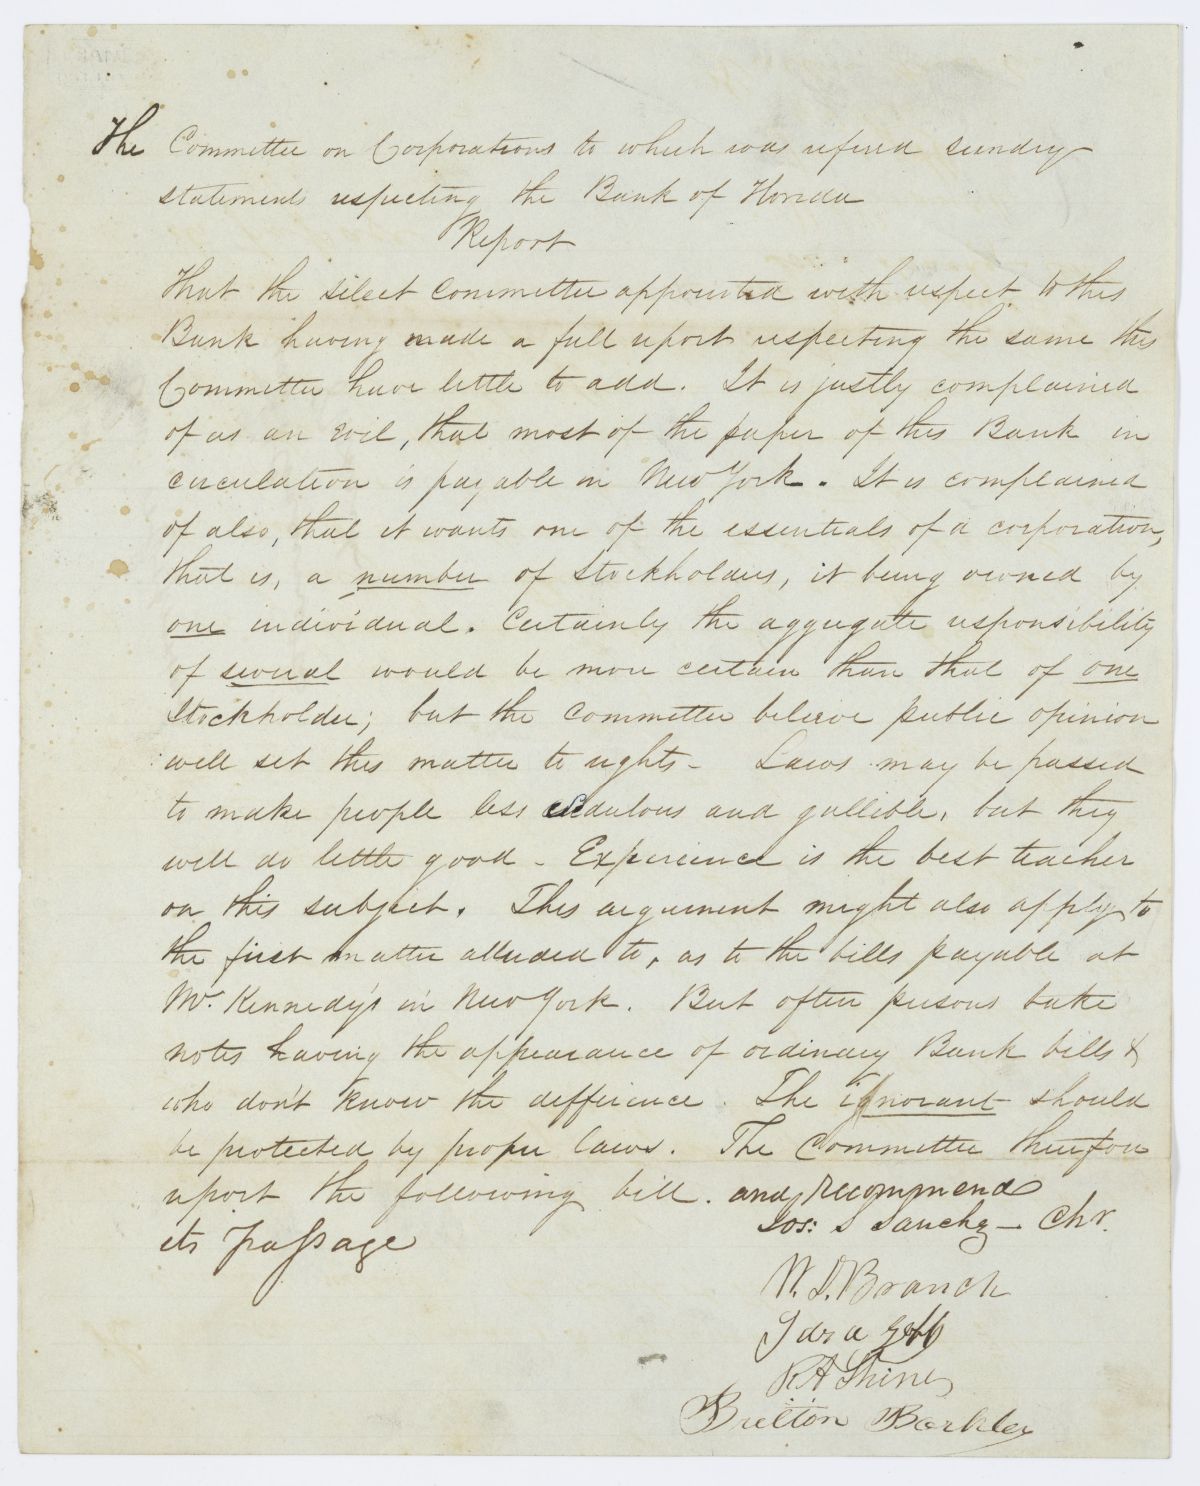 The Committee on Corporations to which was refered sundry
statements respecting the Bank of Florida
Report
That the select committee appointed with respect to this
Bank having made a full report respecting the same this
Committee have little to add. It is justly complained
of as an evil, that most of the paper of this Bank in
circulation is payable in New York. It is complained
of also, that it wants one of the essentials of a corporation,
that is, a number of Stockholders, it being owned by
one individual. Certainly the aggregate responsibility
of several would be more certain than that of one
Stockholder; but the committee believe public opinion
will set this matter to rights - Laws may be passed
to make people less credulous and gullible, but they
will do little good - Experience is the best teacher
on this subject. This argument might also apply to
the first matter alluded to, as to the bills payable at
Mr. Kennedy's in New York. But often persons take
notes having the appearance of ordinary Bank bills &
who don't know the difference. The ignorant should
be protected by proper laws. The Committee therefore
report the following bill. and recommend
its passage
Jos: S Sanchez - Chr.
W. S. Branch
R A Shine
Britton Barkley